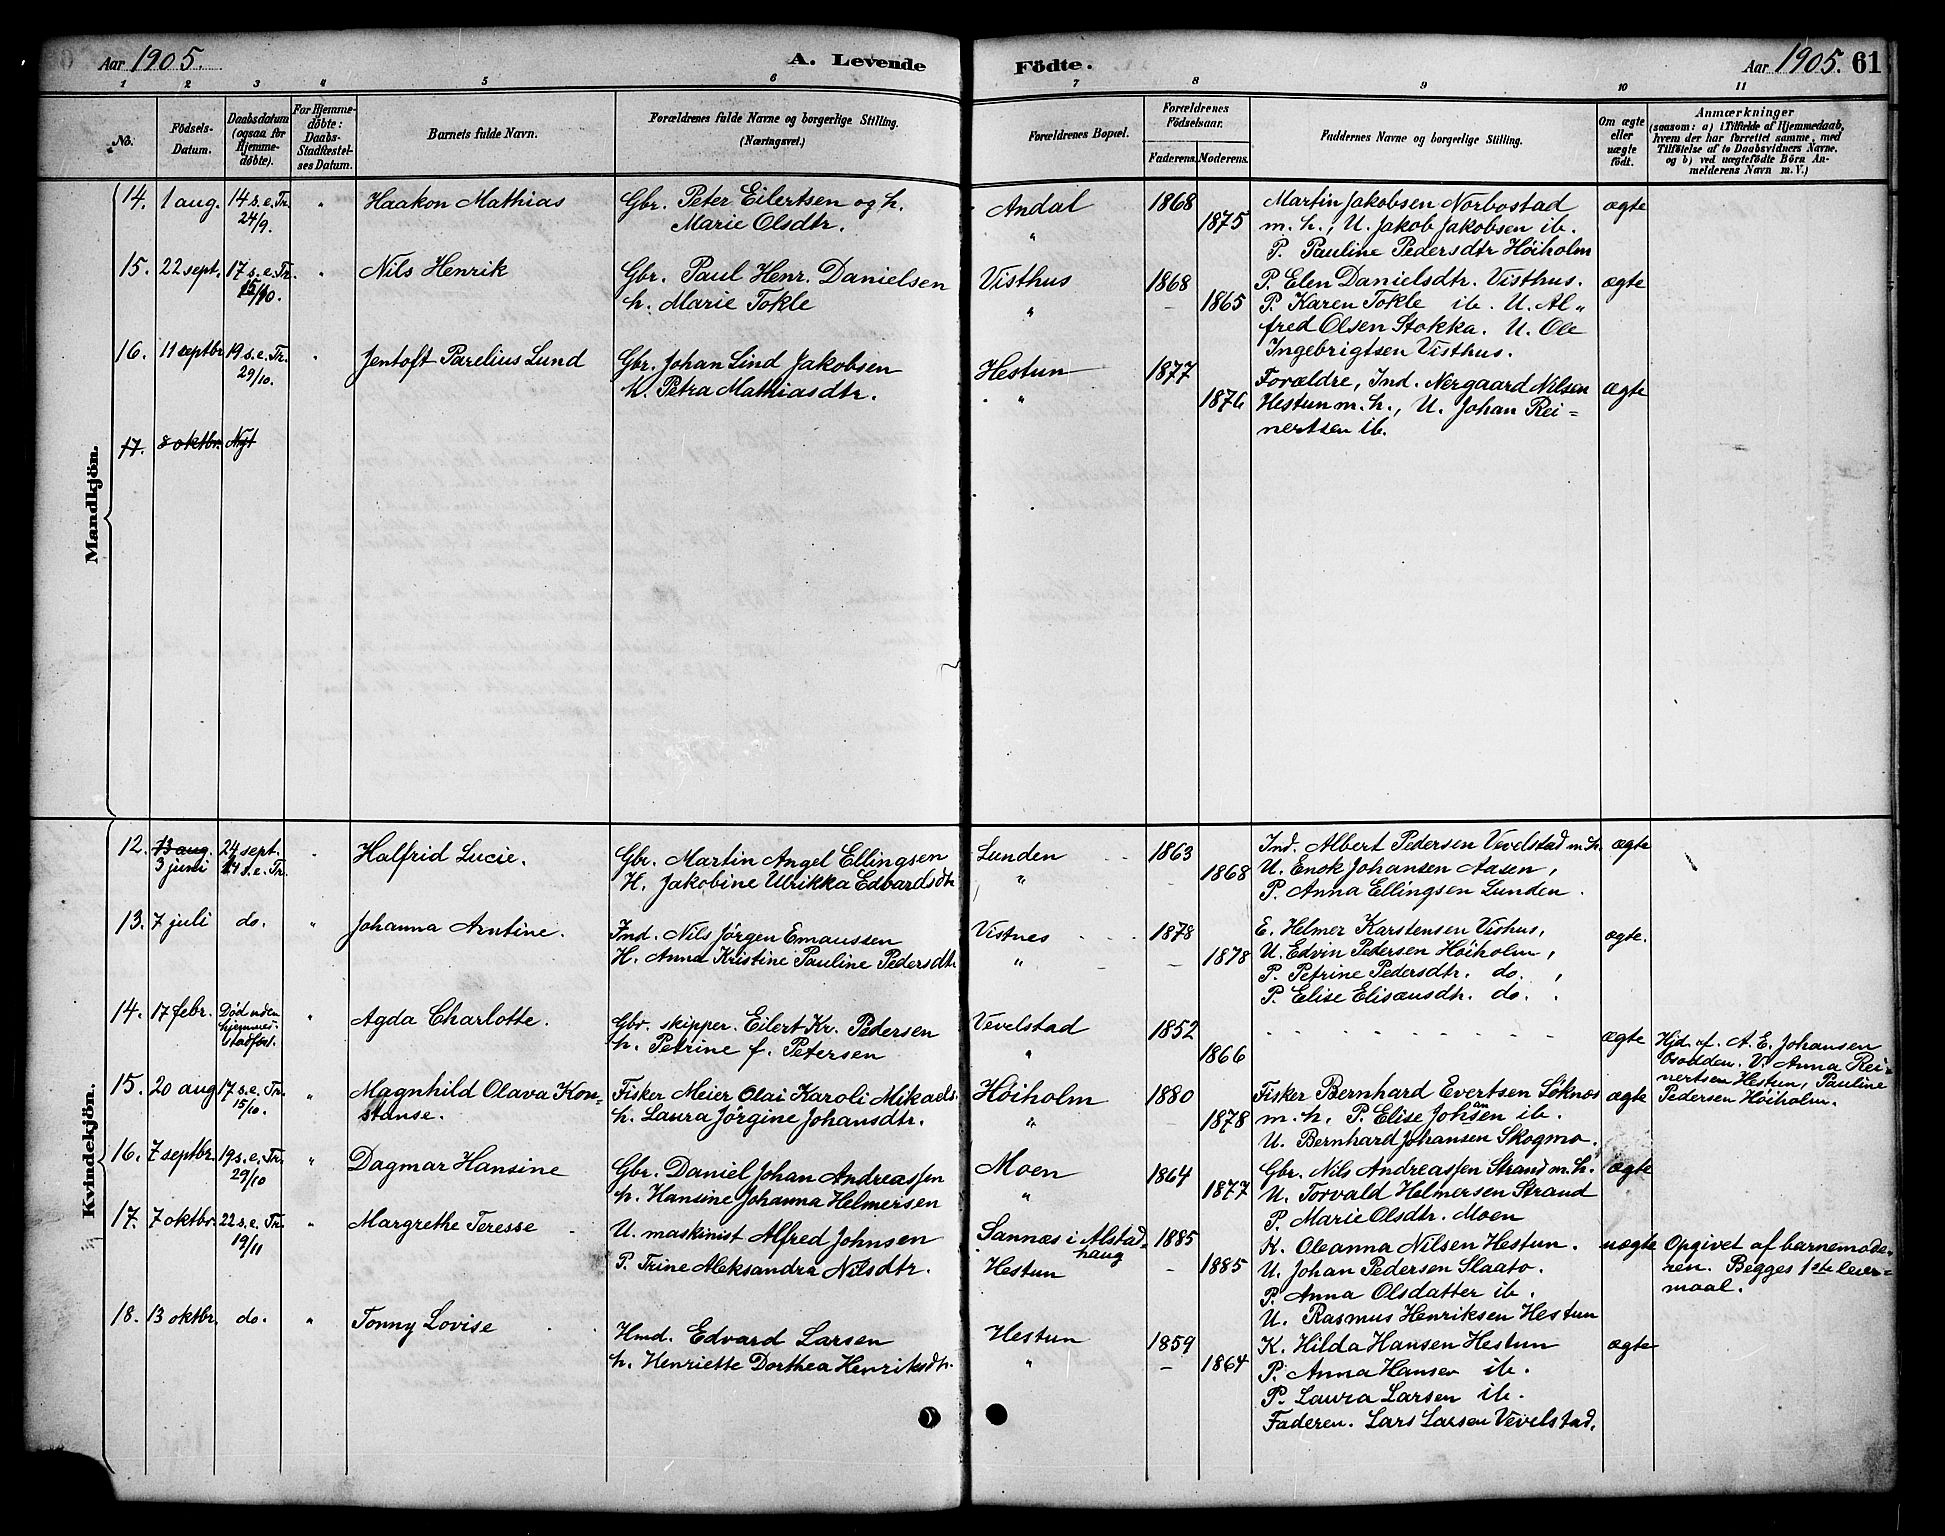 Aar 1905. A. Levende Födte. Aar 1905. 61
1 2 3 4 5 6 7 8 9 10 11
No.
Födsels-
Datum.
Daabsdatum
(ogsaa for
Hjemme-
döbte).
For Hjemme-
döbte:
Daabs-
Stadfæstel-
ses Datum.
Barnets fulde Navn.
Forældrenes fulde Navne og borgerlige Stilling.
(Næringsvei.)
Forældrenes Bopæl.
Forældrenes
Födselsaar.
Faderens. Moderens.
Faddernes Navne og borgerlige Stilling.
Om ægte
eller
uægte
födt.
Anmærkninger
(saasom: a) i Tilfælde af Hjemmedaab,
hvem der har forrettet samme, med
Tilföielse af to Daabsvidners Navne,
og b) ved uægtefödte Börn An-
melderens Navn m. V.)
Mandkjön.
14. 1 aug. 14 s.e. Tr. " Haakon Mathias Gbr. Peter Eilertsen og h. Andal 1868 Martin Jakobsen Norbostad ægte
24/9. Marie Olsdtr. " 1875 m. h., U. Jakob Jakobsen ib.
P. Pauline Pedersdtr Höiholm
15. 22 sept. 17 s.e. Tr. " Nils Henrik Gbr. Paul Henr. Danielsen Visthus 1868 P. Elen Danielsdtr. Visthus. ægte
15/10. h. Marie Tokle " 1865 P. Karen Tokle ib. U. Al„
fred Olsen Stokka. U. Ole
Ingebrigtsen Visthus.
16. 11 septbr 19 s.e. Tr. " Jentoft Parelius Lund Gbr. Johan Lind Jakobsen Hestun 1877 Forældre, Ind. Nergaard Nilsen ægte
29/10. h. Petra Mathiasdtr. " 1876 Hestun m. h., U. Johan Rei=
nertsen ib.
17. 8 oktbr. Nyt
Kvindekjön.
12. 13 aug. 24 sept. " Halfrid Lucie. Gbr. Martin Angel Ellingsen Lunden 1863 Ind. Albert Pedersen Vevelstad m. h. ægte
3 juni 14 s.e. Tr. H. Jakobine Ulrikka Edvardsdtr " 1868 U. Enok Johansen Aasen,
P. Anna Ellingsen Lunden.
13. 7 juli do. " Johanna Arntine. Ind. Nils Jörgen Emaussen Vistnes 1878 E. Helmer Karstensen Vishus, ægte.
H. Anna Kristine Pauline Pedersdtr " 1878 U. Edvin Pedersen Höiholm,
P. Petrine Pedersdtr. do. ,
P. Elise Elisæusdtr. do. .
14. 17 febr. Död uden " Agda Charlotte. Gbr. skipper. Eilert Kr. Pedersen Vevelstad 1852 - - - - - - - - ægte Hjd. af. A. E. Johansen
hjemmes. h. Petrine f. Petersen " 1866 V. Anna Rei=
stadfæst. nertsen Hestun, Pauline
Pedersen Höiholm.
15. 20 aug 17 s.e. Tr. " Magnhild Olava Kon= Fisker Meier Olai Karoli Mikaels. Höiholm 1880 Fisker Bernhard Evertsen Söknes ægte
15/10. stanse. h. Laura Jörgine Johansdtr. " 1878 m. h. P. Elise Johansen ib.
U. Bernhard Johansen Skogmo.
16. 7 septbr. 19 s.e. Tr. " Dagmar Hansine Gbr. Daniel Johan Andreassen Moen 1864 Gbr. Nils Andreassen Strand m. h. ægte
29/10 h. Hansine Johanna Helmersen " 1877 U. Torvald Helmersen Strand
P. Marie Olsdtr. Moen
17. 7 oktbr. 22 s.e. Tr. " Margrethe Teresse U. maskinist Alfred Johnsen Sannæs i Alstad- 1885 K. Oleanna Nilsen Hestun. uægte Opgivet af barnemode-
19/11 P. Trine Aleksandra Nilsdtr. haug 1885 U. Johan Pedersen Slaato. ren. Begges 1ste leier=
Hestun P. Anna Olsdatter ib. maal.
U. Rasmus Henriksen Hestun
18. 13 oktbr. do. " Tonny Lovise Hmd. Edvard Larsen Hestun 1859 K. Hilda Hansen Hestun ægte
h. Henriette Dorthea Henriksdtr. " 1864 P. Anna Hansen ib.
P. Laura Larsen ib.
Faderen. Lars Larsen Vevelstad.